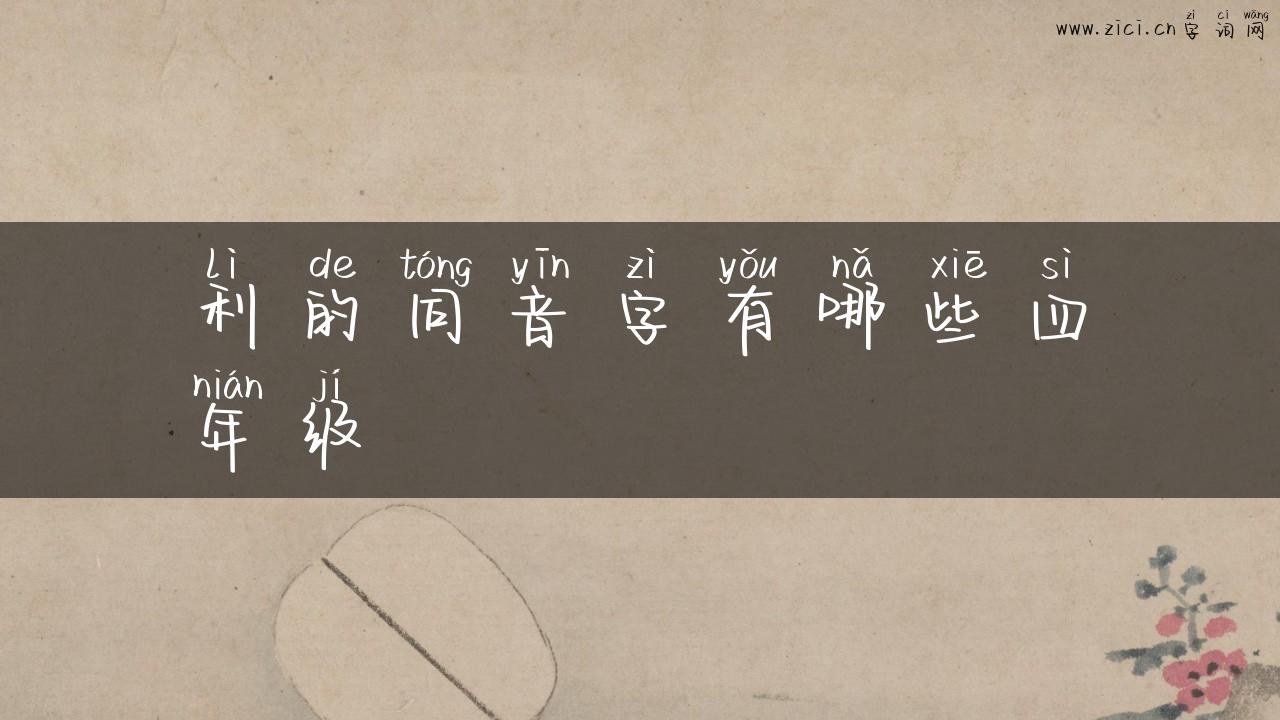 zì cí wǎng
www.zici.cn 字词网
lì de tóng yīn zì yǒu nǎ xiē sì
利的同音字有哪些四
nián jí
年级